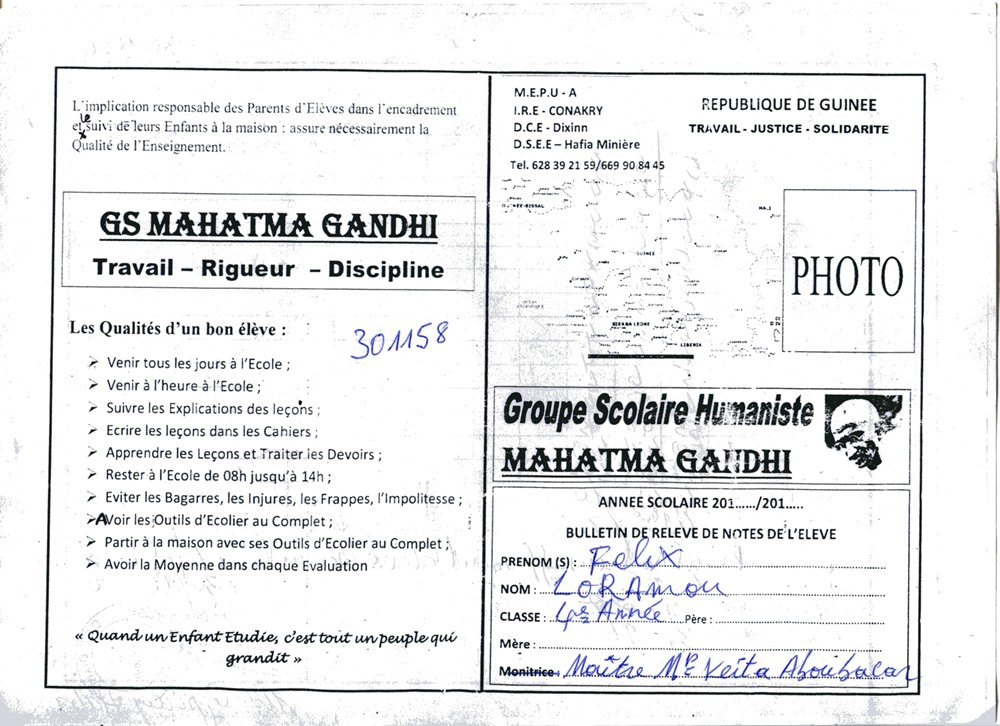 L'implication responsable des Parents d'Elèves dans l'encadrement
et le suivi de leurs Enfants à la maison : assure nécessairement la
Qualité de l'Enseignement.
GS MAHATMA GANDHI
Travail – Rigueur – Discipline
Les Qualités d'un bon élève :
301158
➢ Venir tous les jours à l'Ecole ;
➢ Venir à l'heure à l'Ecole ;
➢ Suivre les Explications des leçons ;
➢ Ecrire les leçons dans les Cahiers ;
➢ Apprendre les Leçons et Traiter les Devoirs ;
➢ Rester à l'Ecole de 08h jusqu'à 14h ;
➢ Eviter les Bagarres, les Injures, les Frappes, l'Impolitesse ;
➢ AVoir les Outils d'Ecolier au Complet ;
➢ Partir à la maison avec ses Outils d'Ecolier au Complet ;
➢ Avoir la Moyenne dans chaque Evaluation
« Quand un Enfant Etudie, c'est tout un peuple qui
grandit »
M.E.P.U - A
I.R.E - CONAKRY
D.C.E - Dixinn
D.S.E.E – Hafia Minière
Tel. 628 39 21 59/669 90 84 45
REPUBLIQUE DE GUINEE
TRAVAIL - JUSTICE - SOLIDARITE
GUINEE
SIERRA LEONE
LIBERIA
PHOTO
Groupe Scolaire Humaniste
MAHATMA GANDHI
ANNEE SCOLAIRE 201....../201.....
BULLETIN DE RELEVE DE NOTES DE L'ELEVE
PRENOM (S) : Felix
NOM : LORAmou
CLASSE : Année Père :
Mère :
Monitrice : Maître Mr Keita Aboubacar